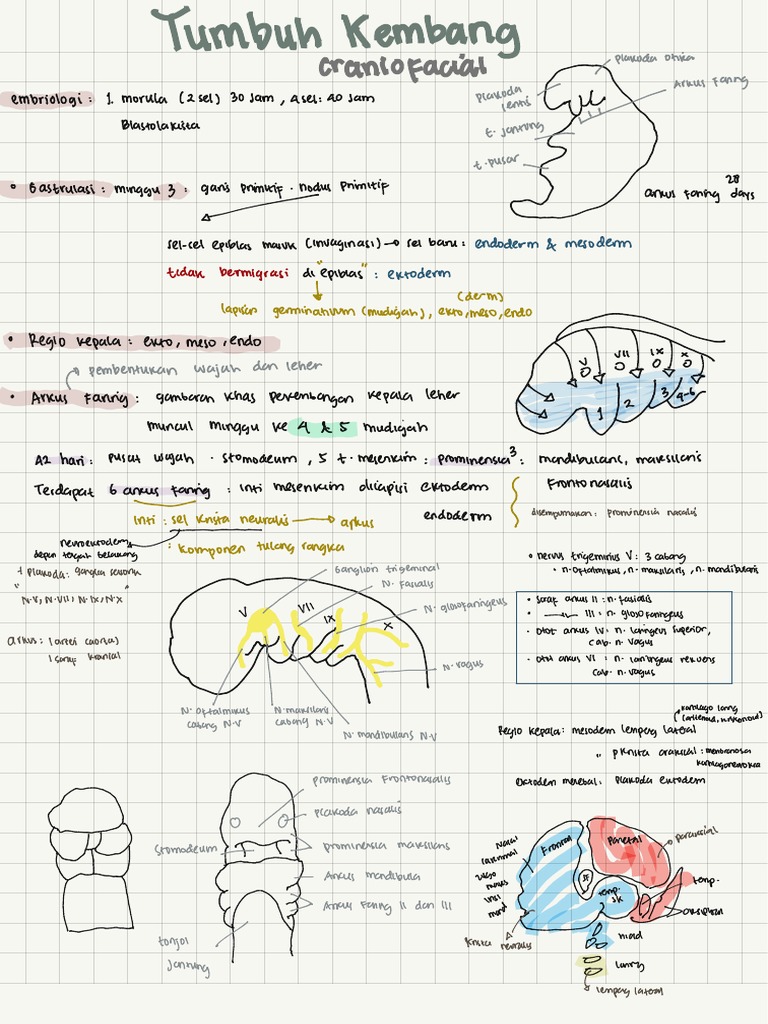 Tumbuh Kembang
craniofacial
embriologi : 1. morula (2 sel) 30 jam, 4 sel: 40 jam
Blastolakista
plakoda otika
plakoda lentis
Arkus Faring
t. jantung
t. pusar
arkus faring 28 days
• Gastrulasi : minggu 3 : garis primitif · nodus primitif
sel-sel epiblas masuk (invaginasi) → sel baru : endoderm & mesoderm
tidak bermigrasi di "epiblas" : ektoderm
lapisan germinativum (mudigah), ekto, meso, endo (derm)
• Regio kepala : ekto, meso, endo
pembentukan wajah dan leher
• Arkus Faring : gambaran khas perkembangan kepala leher
muncul minggu ke 4 & 5 mudigah
V VII IX X
1 2 3 4-6
42 hari : pusat wajah · stomodeum, 5 t. mesenkim : prominensia³ : mandibularis, maksilaris
Frontonasalis
Terdapat 6 arkus faring : inti mesenkim dilapisi ektoderm
endoderm
disempurnakan : prominensia nasalis
inti : sel krista neuralis → arkus
neuroektoderm
depan tengah belakang
: komponen tulang rangka
+ plakoda : ganglia sensorik
"N.V, N.VII, N.IX, N.X"
arkus : 1 arteri (aorta)
1 saraf kranial
• nervus trigeminus V : 3 cabang
• n. oftalmikus, n. maksilaris, n. mandibularis
Ganglion trigeminal
N. Fasialis
N. glosofaringeus
V VII IX X
N. vagus
N. oftalmikus cabang N.V
N. maksilaris cabang N.V
N. mandibularis N.V
• saraf arkus II : n. fasialis
• III : n. glosofaringeus
• otot arkus IV : n. laringeus superior,
cab. n. vagus
• otot arkus VI : n. laringeus rekurens
cab. n. vagus
Regio kepala : mesoderm lempeng lateral
kartilago laring
" p krista
ektoderm menebal : plakoda ektoderm
prominensia Frontonasalis
plakoda nasalis
Stomodeum
prominensia maksilaris
Arkus mandibula
Arkus Faring II dan III
tonjol jantung
Frontal
Parietal
paraksial
Nasal
lakrimal
zigo
maks
insi
mand
SF
temp. sk
temp.
oksipital
krista neuralis
hioid
laring
lempeng lateral